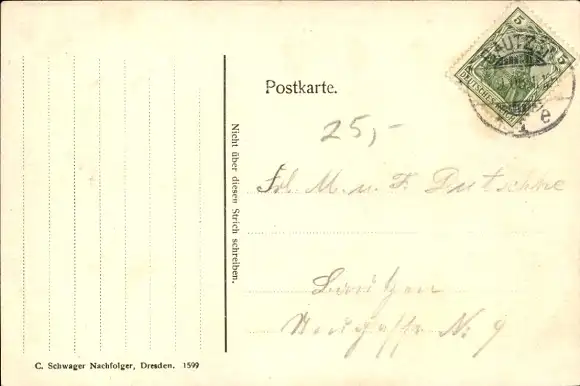 Postkarte.
5 5
BAUTZEN
DEUTSCHES REICH
e
25,-
Nicht über diesen Strich schreiben.
Frl. M. u. F.
Bautzen
No 9
C. Schwager Nachfolger, Dresden. 1599